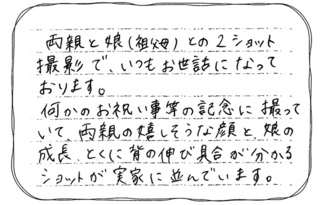 両親と娘(祖父母)との2ショット
撮影で、いつもお世話になって
おります。
何かのお祝い事等の記念に撮って
いて、両親の嬉しそうな顔と、娘の
成長、とくに背の伸び具合が分かる
ショットが実家に並んでいます。